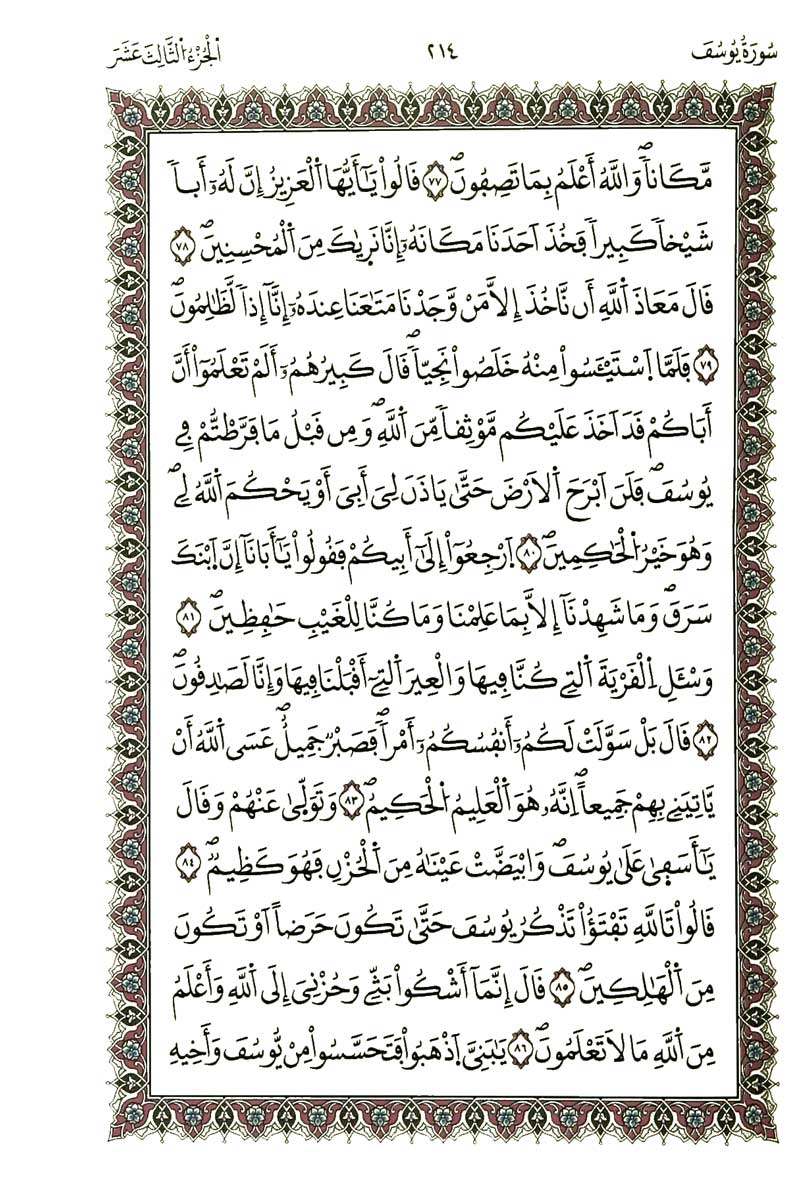 سُورَةُ يُوسُفَ ٢١٤ اَلْجُزْءُ الثَّالِثَ عَشَرَ
مَّكَاناٗۖ وَاللَّهُ أَعْلَمُ بِمَا تَصِفُونَۖ ٧٧ قَالُواْ يَٰٓأَيُّهَا اَلْعَزِيزُ إِنَّ لَهُۥٓ أَباٗ
شَيْخاٗ كَبِيراٗ فَخُذَ اَحَدَنَا مَكَانَهُۥٓ إِنَّا نَر۪يٰكَ مِنَ اَلْمُحْسِنِينَۖ ٧٨
قَالَ مَعَاذَ اَللَّهِ أَن نَّاخُذَ إِلاَّ مَنْ وَّجَدْنَا مَتَٰعَنَا عِندَهُۥٓ إِنَّآ إِذاٗ لَّظَٰلِمُونَۖ
٧٩ فَلَمَّا اَسْتَيْـَٔسُواْ مِنْهُ خَلَصُواْ نَجِيّاٗۖ قَالَ كَبِيرُهُمُۥٓ أَلَمْ تَعْلَمُوٓاْ أَنَّ
أَبَاكُمْ قَدَ اَخَذَ عَلَيْكُم مَّوْثِقاٗ مِّنَ اَللَّهِۖ وَمِن قَبْلُ مَا فَرَّطتُّمْ فِے
يُوسُفَۖ فَلَنَ اَبْرَحَ اَلَارْضَ حَتَّىٰ يَاذَنَ لِيَ أَبِيَ أَوْ يَحْكُمَ اَللَّهُ لِےۖ
وَهُوَ خَيْرُ اُلْحَٰكِمِينَۖ ٨٠ اَرْجِعُوٓاْ إِلَىٰٓ أَبِيكُمْ فَقُولُواْ يَٰٓأَبَانَآ إِنَّ اَبْنَكَ
سَرَقَۖ وَمَا شَهِدْنَآ إِلاَّ بِمَا عَلِمْنَا وَمَا كُنَّا لِلْغَيْبِ حَٰفِظِينَۖ ٨١
وَسْـَٔلِ اِلْقَرْيَةَ اَلتِے كُنَّا فِيهَا وَالْعِيرَ اَلتِےٓ أَقْبَلْنَا فِيهَا وَإِنَّا لَصَٰدِقُونَۖ
٨٢ قَالَ بَلْ سَوَّلَتْ لَكُمُۥٓ أَنفُسُكُمُۥٓ أَمْراٗۖ فَصَبْرٞ جَمِيلٌۖ عَسَى اَللَّهُ أَنْ
يَّاتِيَنِے بِهِمْ جَمِيعاًۖ اِنَّهُۥ هُوَ اَلْعَلِيمُ اُلْحَكِيمُۖ ٨٣ وَتَوَلّ۪يٰ عَنْهُمْ وَقَالَ
يَٰٓأَسَف۪يٰ عَلَىٰ يُوسُفَۖ وَابْيَضَّتْ عَيْنَٰهُ مِنَ اَلْحُزْنِ فَهُوَ كَظِيمٞۖ ٨٤
قَالُواْ تَاللَّهِ تَفْتَؤُاْ تَذْكُرُ يُوسُفَ حَتَّىٰ تَكُونَ حَرَضاً اَوْ تَكُونَ
مِنَ اَلْهَٰلِكِينَۖ ٨٥ قَالَ إِنَّمَآ أَشْكُواْ بَثِّے وَحُزْنِيَ إِلَى اَللَّهِ وَأَعْلَمُ
مِنَ اَللَّهِ مَا لَا تَعْلَمُونَۖ ٨٦ يَٰبَنِيَّ اَذْهَبُواْ فَتَحَسَّسُواْ مِنْ يُّوسُفَ وَأَخِيهِ